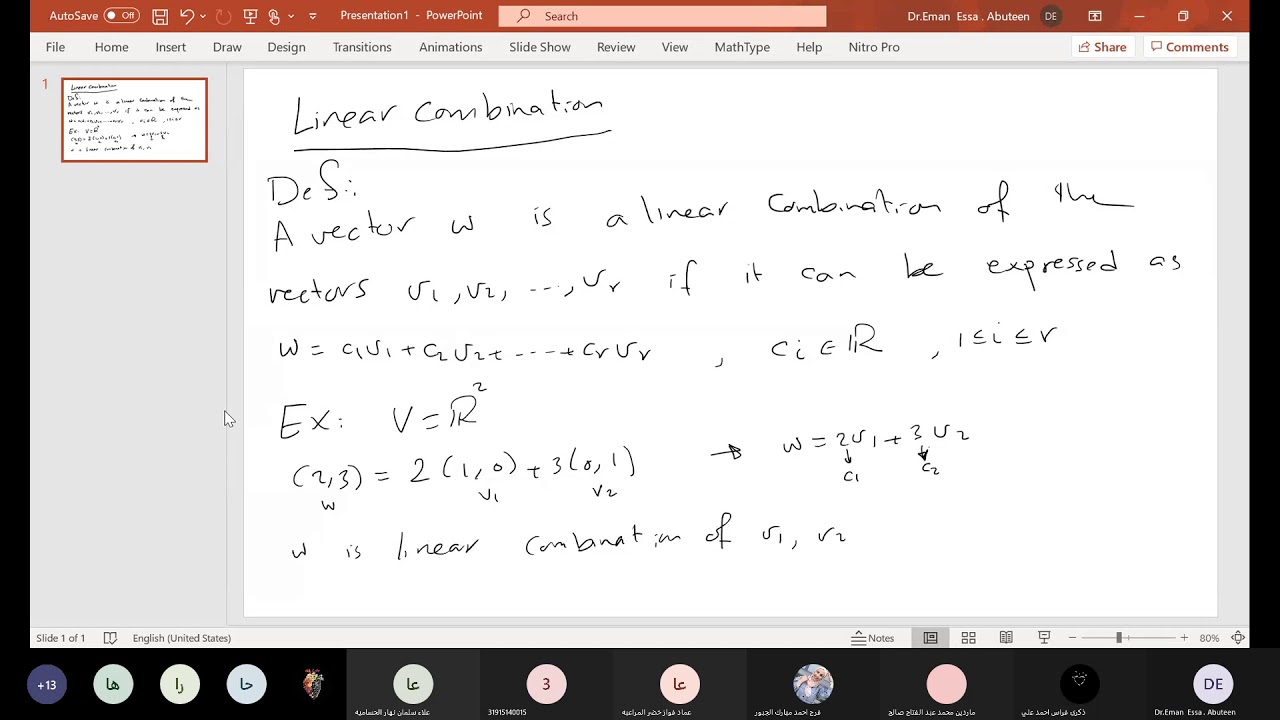 AutoSave Off Presentation1 - PowerPoint Search Dr.Eman Essa . Abuteen DE
File Home Insert Draw Design Transitions Animations Slide Show Review View MathType Help Nitro Pro Share Comments
1
Linear Combination
Def:
A vector w is a linear combination of the
vectors v1, v2, ..., vr if it can be expressed as
w = c1v1 + c2v2 + ... + crvr , ci ∈ ℝ , 1 ≤ i ≤ r
Ex: V = ℝ²
(2,3) = 2(1,0) + 3(0,1) → w = 2v1 + 3v2
w v1 v2 c1 c2
w is linear combination of v1, v2
Slide 1 of 1 English (United States) Notes 80%
+13 ها را حا عا 3 عا DE
علاء سلمان نهار الحساميه 31915140015 عماد فواز خضر المراعيه فرح احمد مبارك الجبور ماردين محمد عبد الفتاح صالح ذكرى فراس احمد علي Dr.Eman Essa. Abuteen